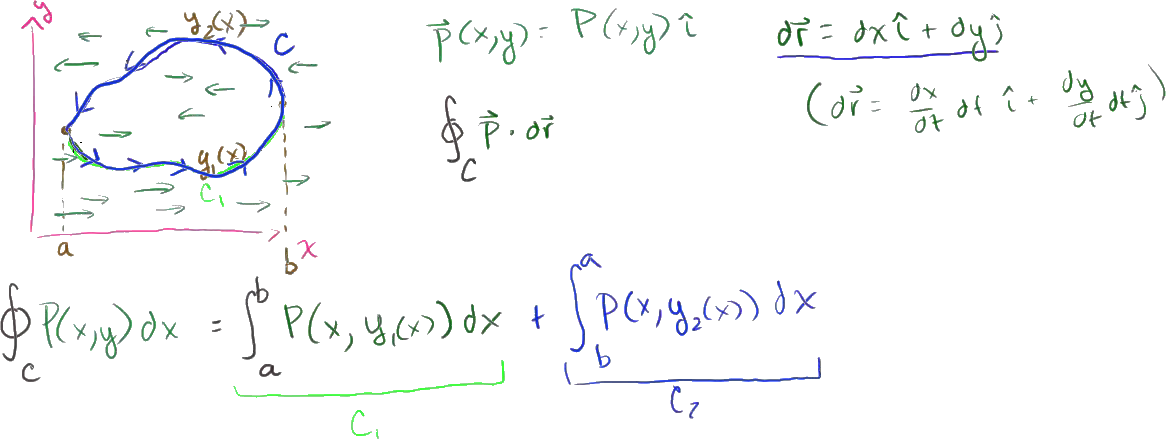 y
y₂(x)
C
y₁(x)
C₁
a
b
x
p⃗(x,y) = P(x,y) î
∮_C p⃗ · dr⃗
dr⃗ = dx î + dy ĵ
(dr⃗ = dx/dt dt î + dy/dt dt ĵ)
∮_C P(x,y) dx = ∫_a^b P(x, y₁(x)) dx + ∫_b^a P(x, y₂(x)) dx
C₁
C₂